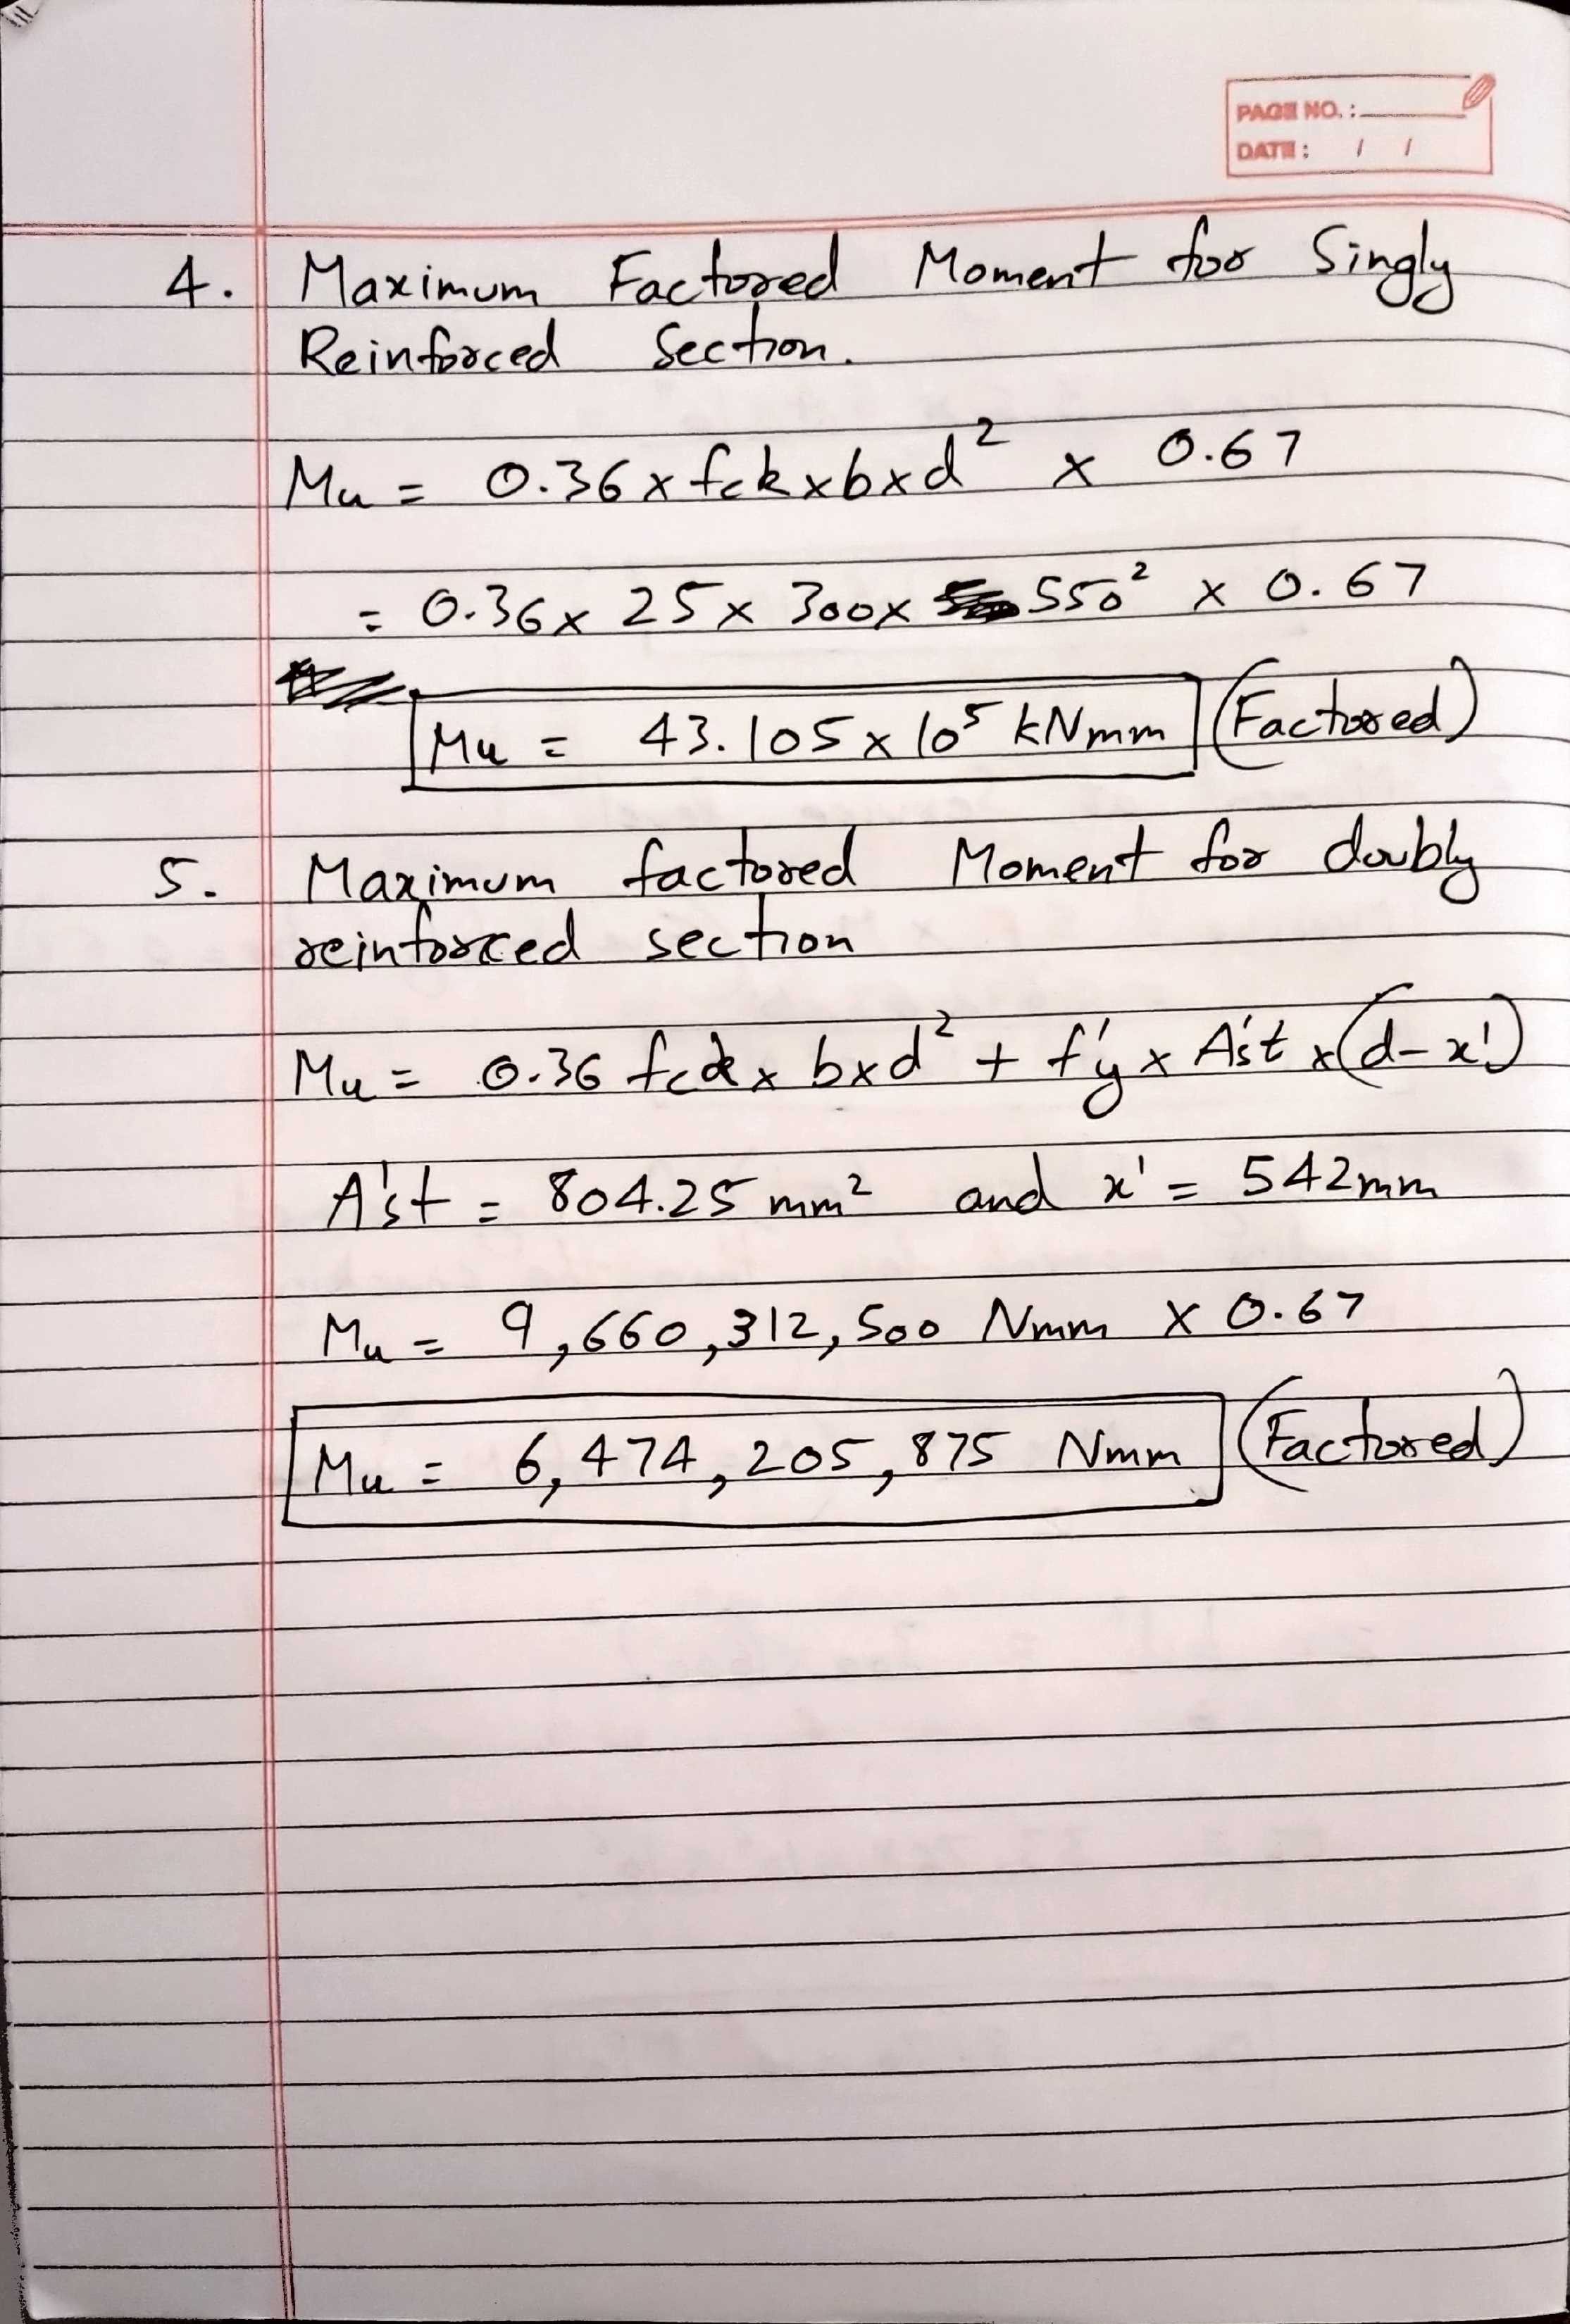 PAGE NO. :
DATE : / /
4. Maximum Factored Moment for Singly
Reinforced Section.
Mu = 0.36 x fck x b x d² x 0.67
= 0.36 x 25 x 300 x 550² x 0.67
Mu = 43.105 x 10⁵ kNmm (Factored)
5. Maximum factored Moment for doubly
reinforced section
Mu = 0.36 fck x b x d² + f'y x A'st x (d - x')
A'st = 804.25 mm² and x' = 542mm
Mu = 9,660,312,500 Nmm x 0.67
Mu = 6,474,205,875 Nmm (Factored)